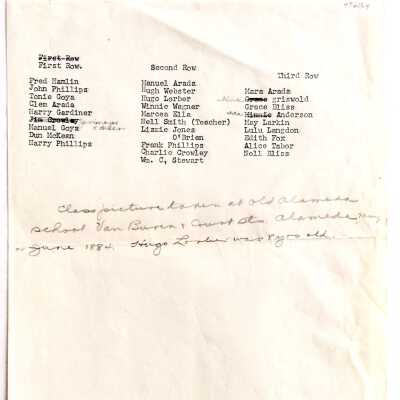 First Row
First Row.
Fred Hamlin
John Phillips
Tonie Goya
Clem Arada
Harry Gardiner
Jim Crowley
Manuel Goya
Dun McKean
Harry Phillips
Second Row
Manuel Arada
Hugh Webster
Hugo Lorber
Winnie Wagner
Marcea Ella
Nell Smith (Teacher)
Lizzie Jones
O'Brien
Frank Phillips
Charlie Crowley
Wm. C, Stewart
Third Row
Mara Arada
Grace griswold
Grace Bliss
Minnie Anderson
May Larkin
Lulu Langdon
Edith Fox
Alice Tabor
Nell Bliss
Class picture taken at Old Alameda
School Van Buren & Court Sts. Alameda
June 1884. Hugo Lorber was 8 yrs old.